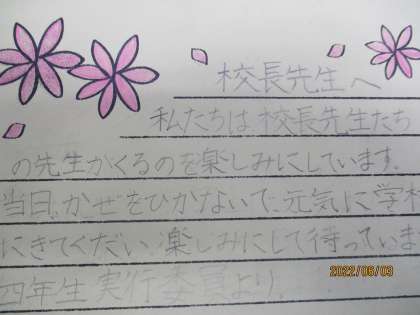 校長先生へ
私たちは校長先生たち
の先生がくるのを楽しみにしています。
当日、かぜをひかないで、元気に学校
にきてくだい楽しみにして待っています
四年生 実行委員より
2022/06/03